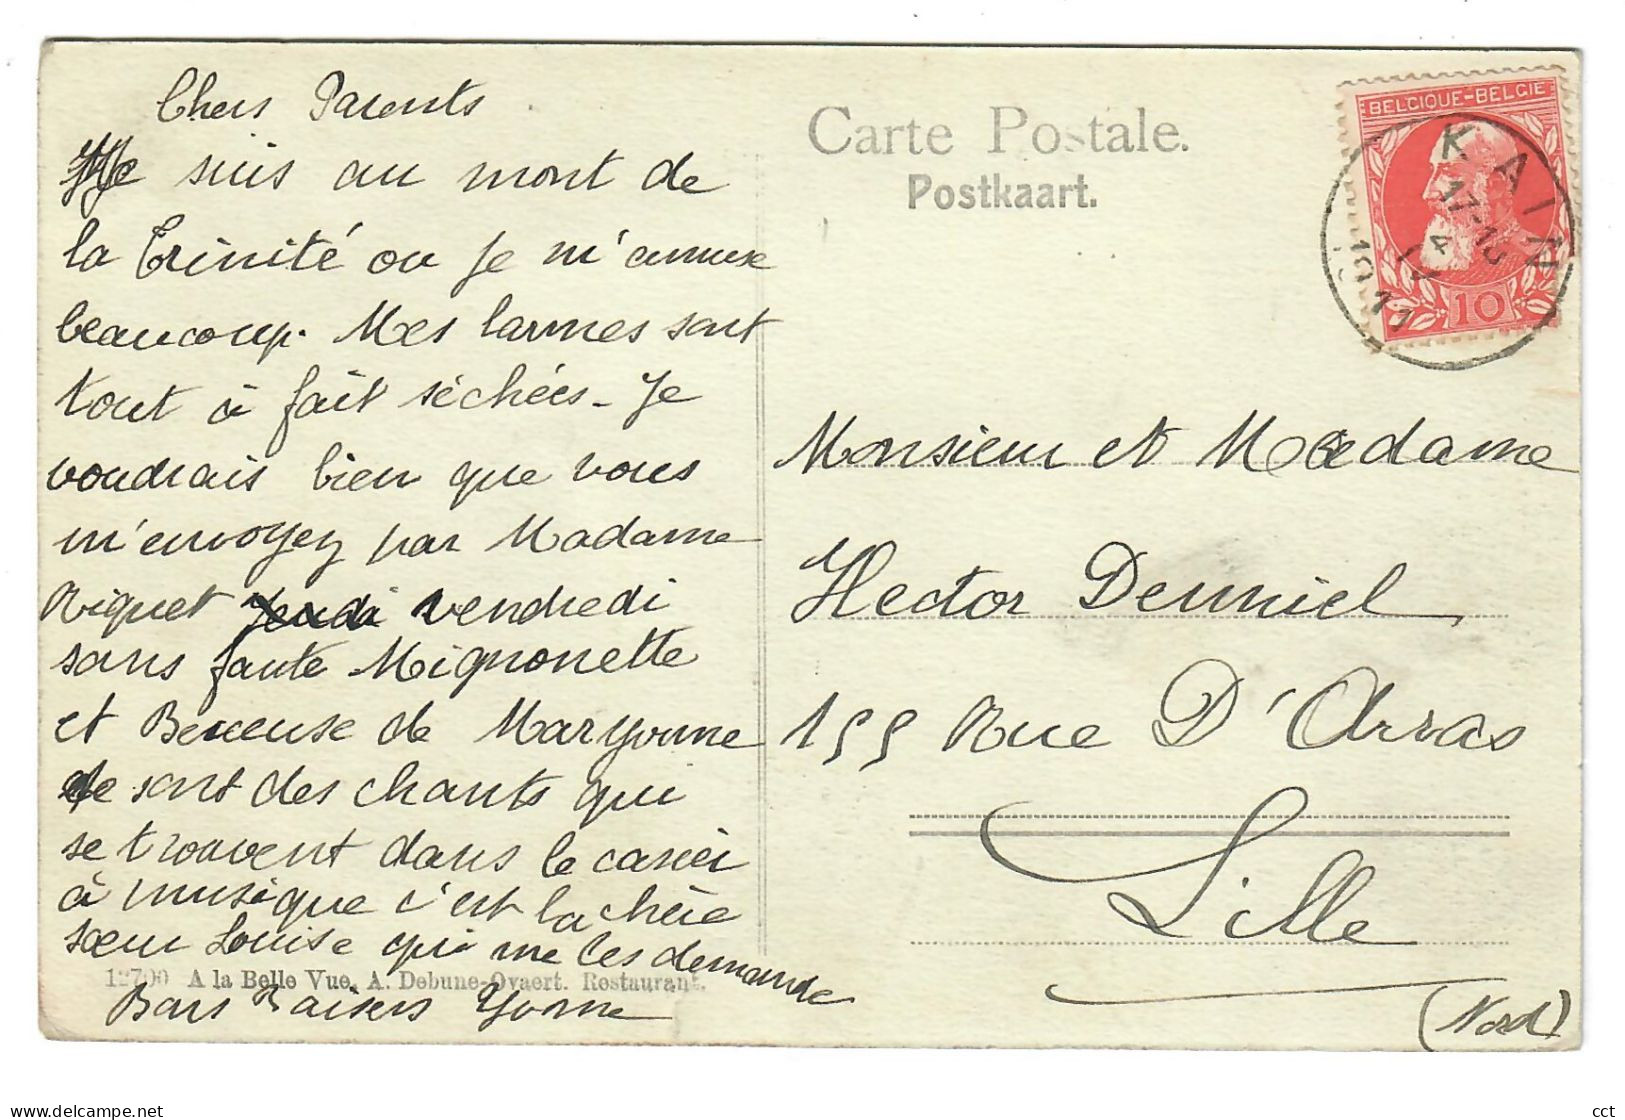 Chers Parents
Je suis au mont de
la Trinité ou je m'amuse
beaucoup. Mes larmes sont
tout à fait séchées - Je
voudrais bien que vous
m'envoyez par Madame
Riquet jeudi vendredi
sans faute Mignonette
et Berceuse de Maryvonne
ce sont des chants qui
se trouvent dans le casier
à musique c'est la chère
sœur Louise qui me les demande
12700 A la Belle Vue, A. Debune-Ovaert. Restaurant.
Bons Baisers Yvonne
Carte Postale.
Postkaart.
BELGIQUE-BELGIE
10
KAIN
17-18
4
1911
Monsieur et Madame
Hector Denniel
155 Rue D'Arras
Lille
(Nord)
cct
delcampe.net